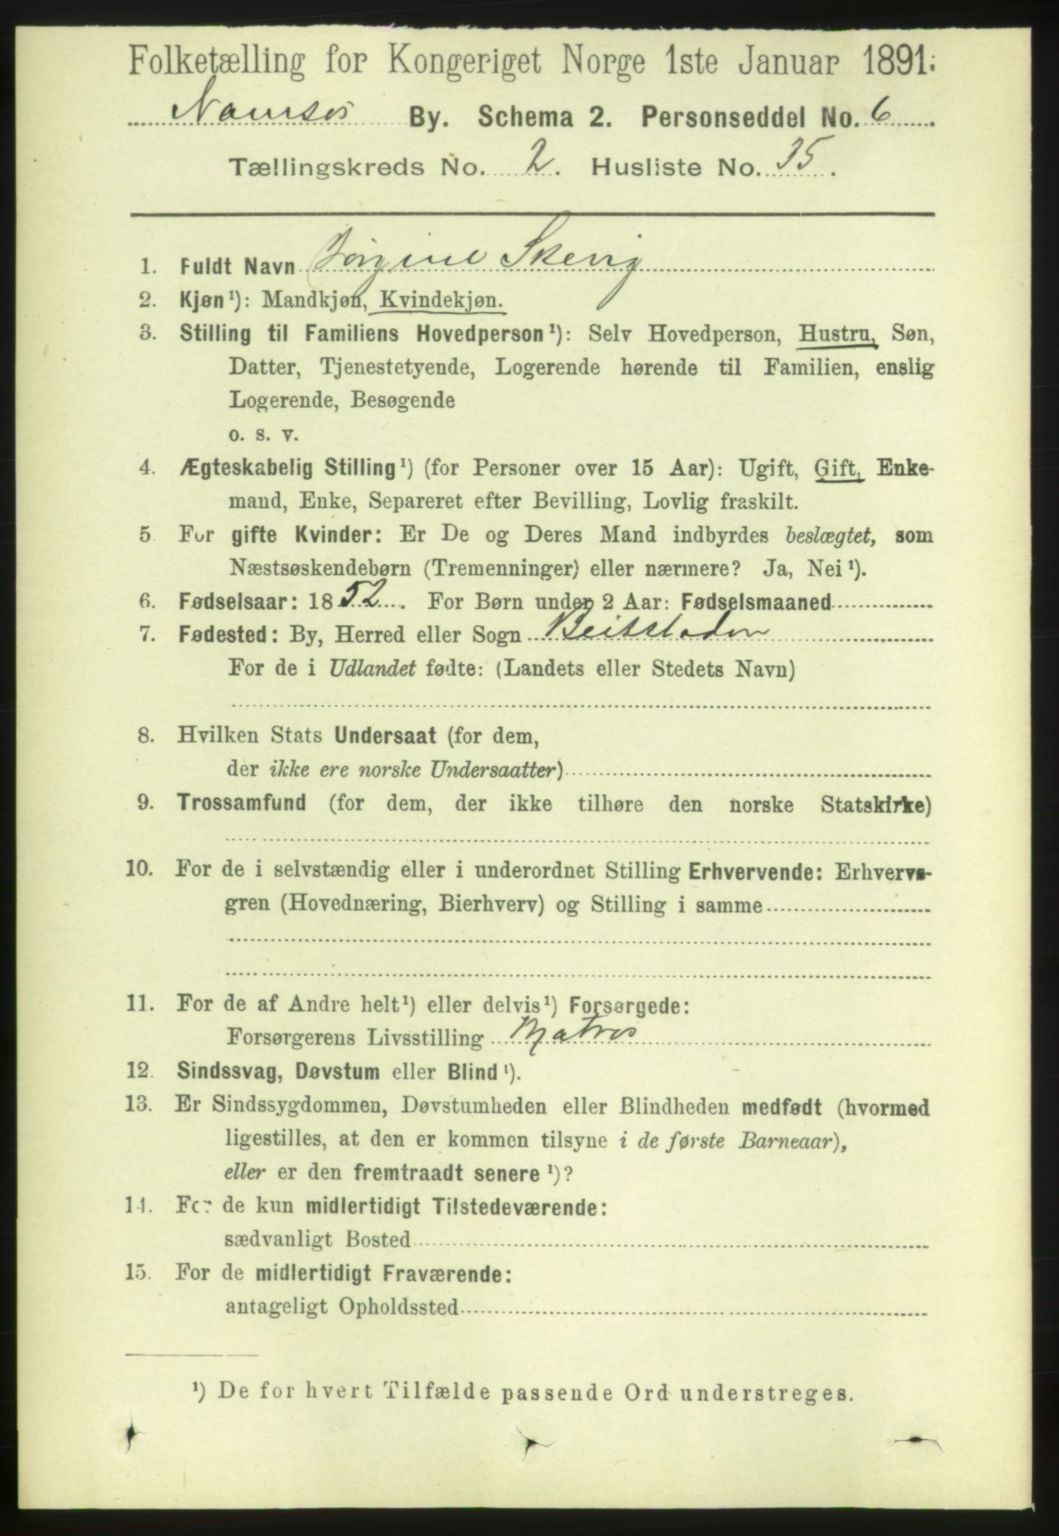 Folketælling for Kongeriget Norge 1ste Januar 1891.
Namsos By. Schema 2. Personseddel No. 6
Tællingskreds No. 2. Husliste No. 35.
1. Fuldt Navn Jørgine Skevig
2. Kjøn¹): Mandkjøn, Kvindekjøn.
3. Stilling til Familiens Hovedperson¹): Selv Hovedperson, Hustru, Søn,
Datter, Tjenestetyende, Logerende hørende til Familien, enslig
Logerende, Besøgende
o. s. v.
4. Ægteskabelig Stilling¹) (for Personer over 15 Aar): Ugift, Gift, Enke-
mand, Enke, Separeret efter Bevilling, Lovlig fraskilt.
5. For gifte Kvinder: Er De og Deres Mand indbyrdes beslægtet, som
Næstsøskendebørn (Tremenninger) eller nærmere? Ja, Nei¹).
6. Fødselsaar: 1852. For Børn under 2 Aar: Fødselsmaaned
7. Fødested: By, Herred eller Sogn Beitstaden
For de i Udlandet fødte: (Landets eller Stedets Navn)
8. Hvilken Stats Undersaat (for dem,
der ikke ere norske Undersaatter)
9. Trossamfund (for dem, der ikke tilhøre den norske Statskirke)
10. For de i selvstændig eller i underordnet Stilling Erhvervende: Erhvervs-
gren (Hovednæring, Bierhverv) og Stilling i samme
11. For de af Andre helt¹) eller delvis¹) Forsørgede:
Forsørgerens Livsstilling Matros
12. Sindssvag, Døvstum eller Blind¹).
13. Er Sindssygdommen, Døvstumheden eller Blindheden medfødt (hvormed
ligestilles, at den er kommen tilsyne i de første Barneaar),
eller er den fremtraadt senere¹)?
14. For de kun midlertidigt Tilstedeværende:
sædvanligt Bosted
15. For de midlertidigt Fraværende:
antageligt Opholdssted
¹) De for hvert Tilfælde passende Ord understreges.